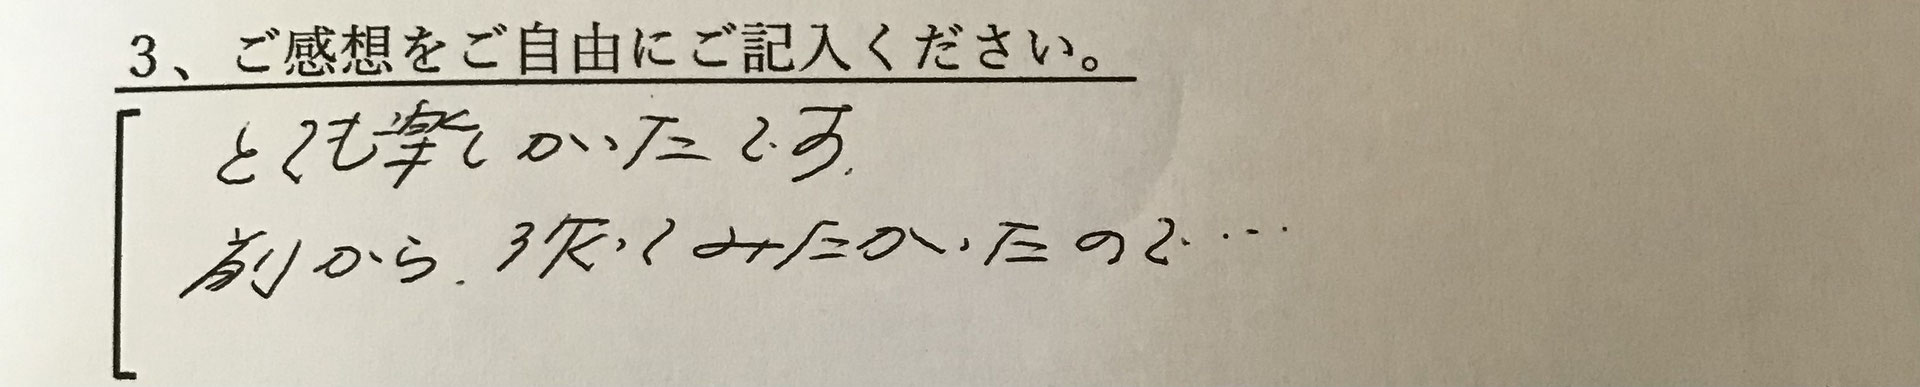 3、ご感想をご自由にご記入ください。
とても楽しかったです.
前から、弾いてみたかったので・・・